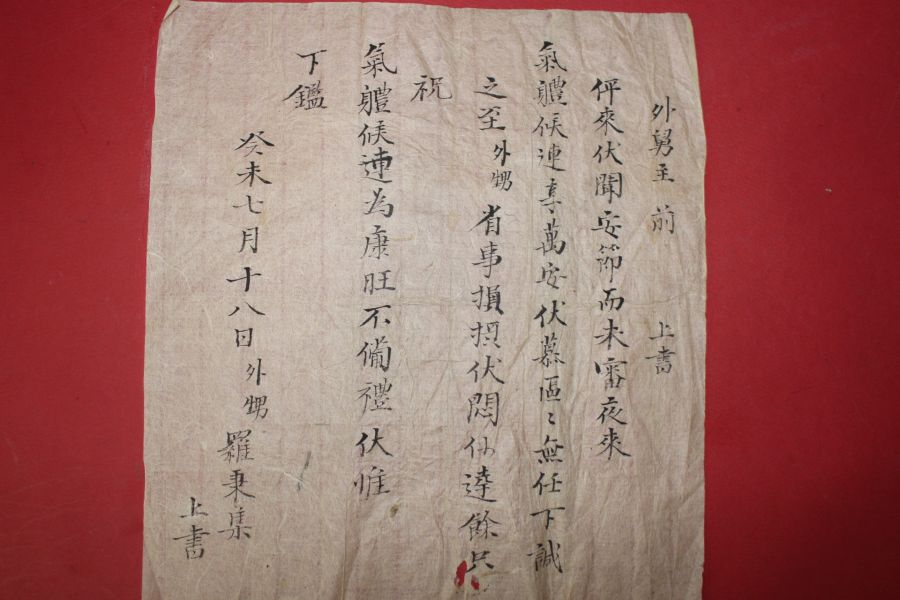 外舅主 前 上書
伻來伏聞安節而未審夜來
氣軆候連享萬安伏慕區〻無任下誠
之至外甥省事損損伏悶仰達餘只
祝
氣軆候連為康旺不備禮伏惟
下鑑
癸未七月十八日外甥羅秉集
上書